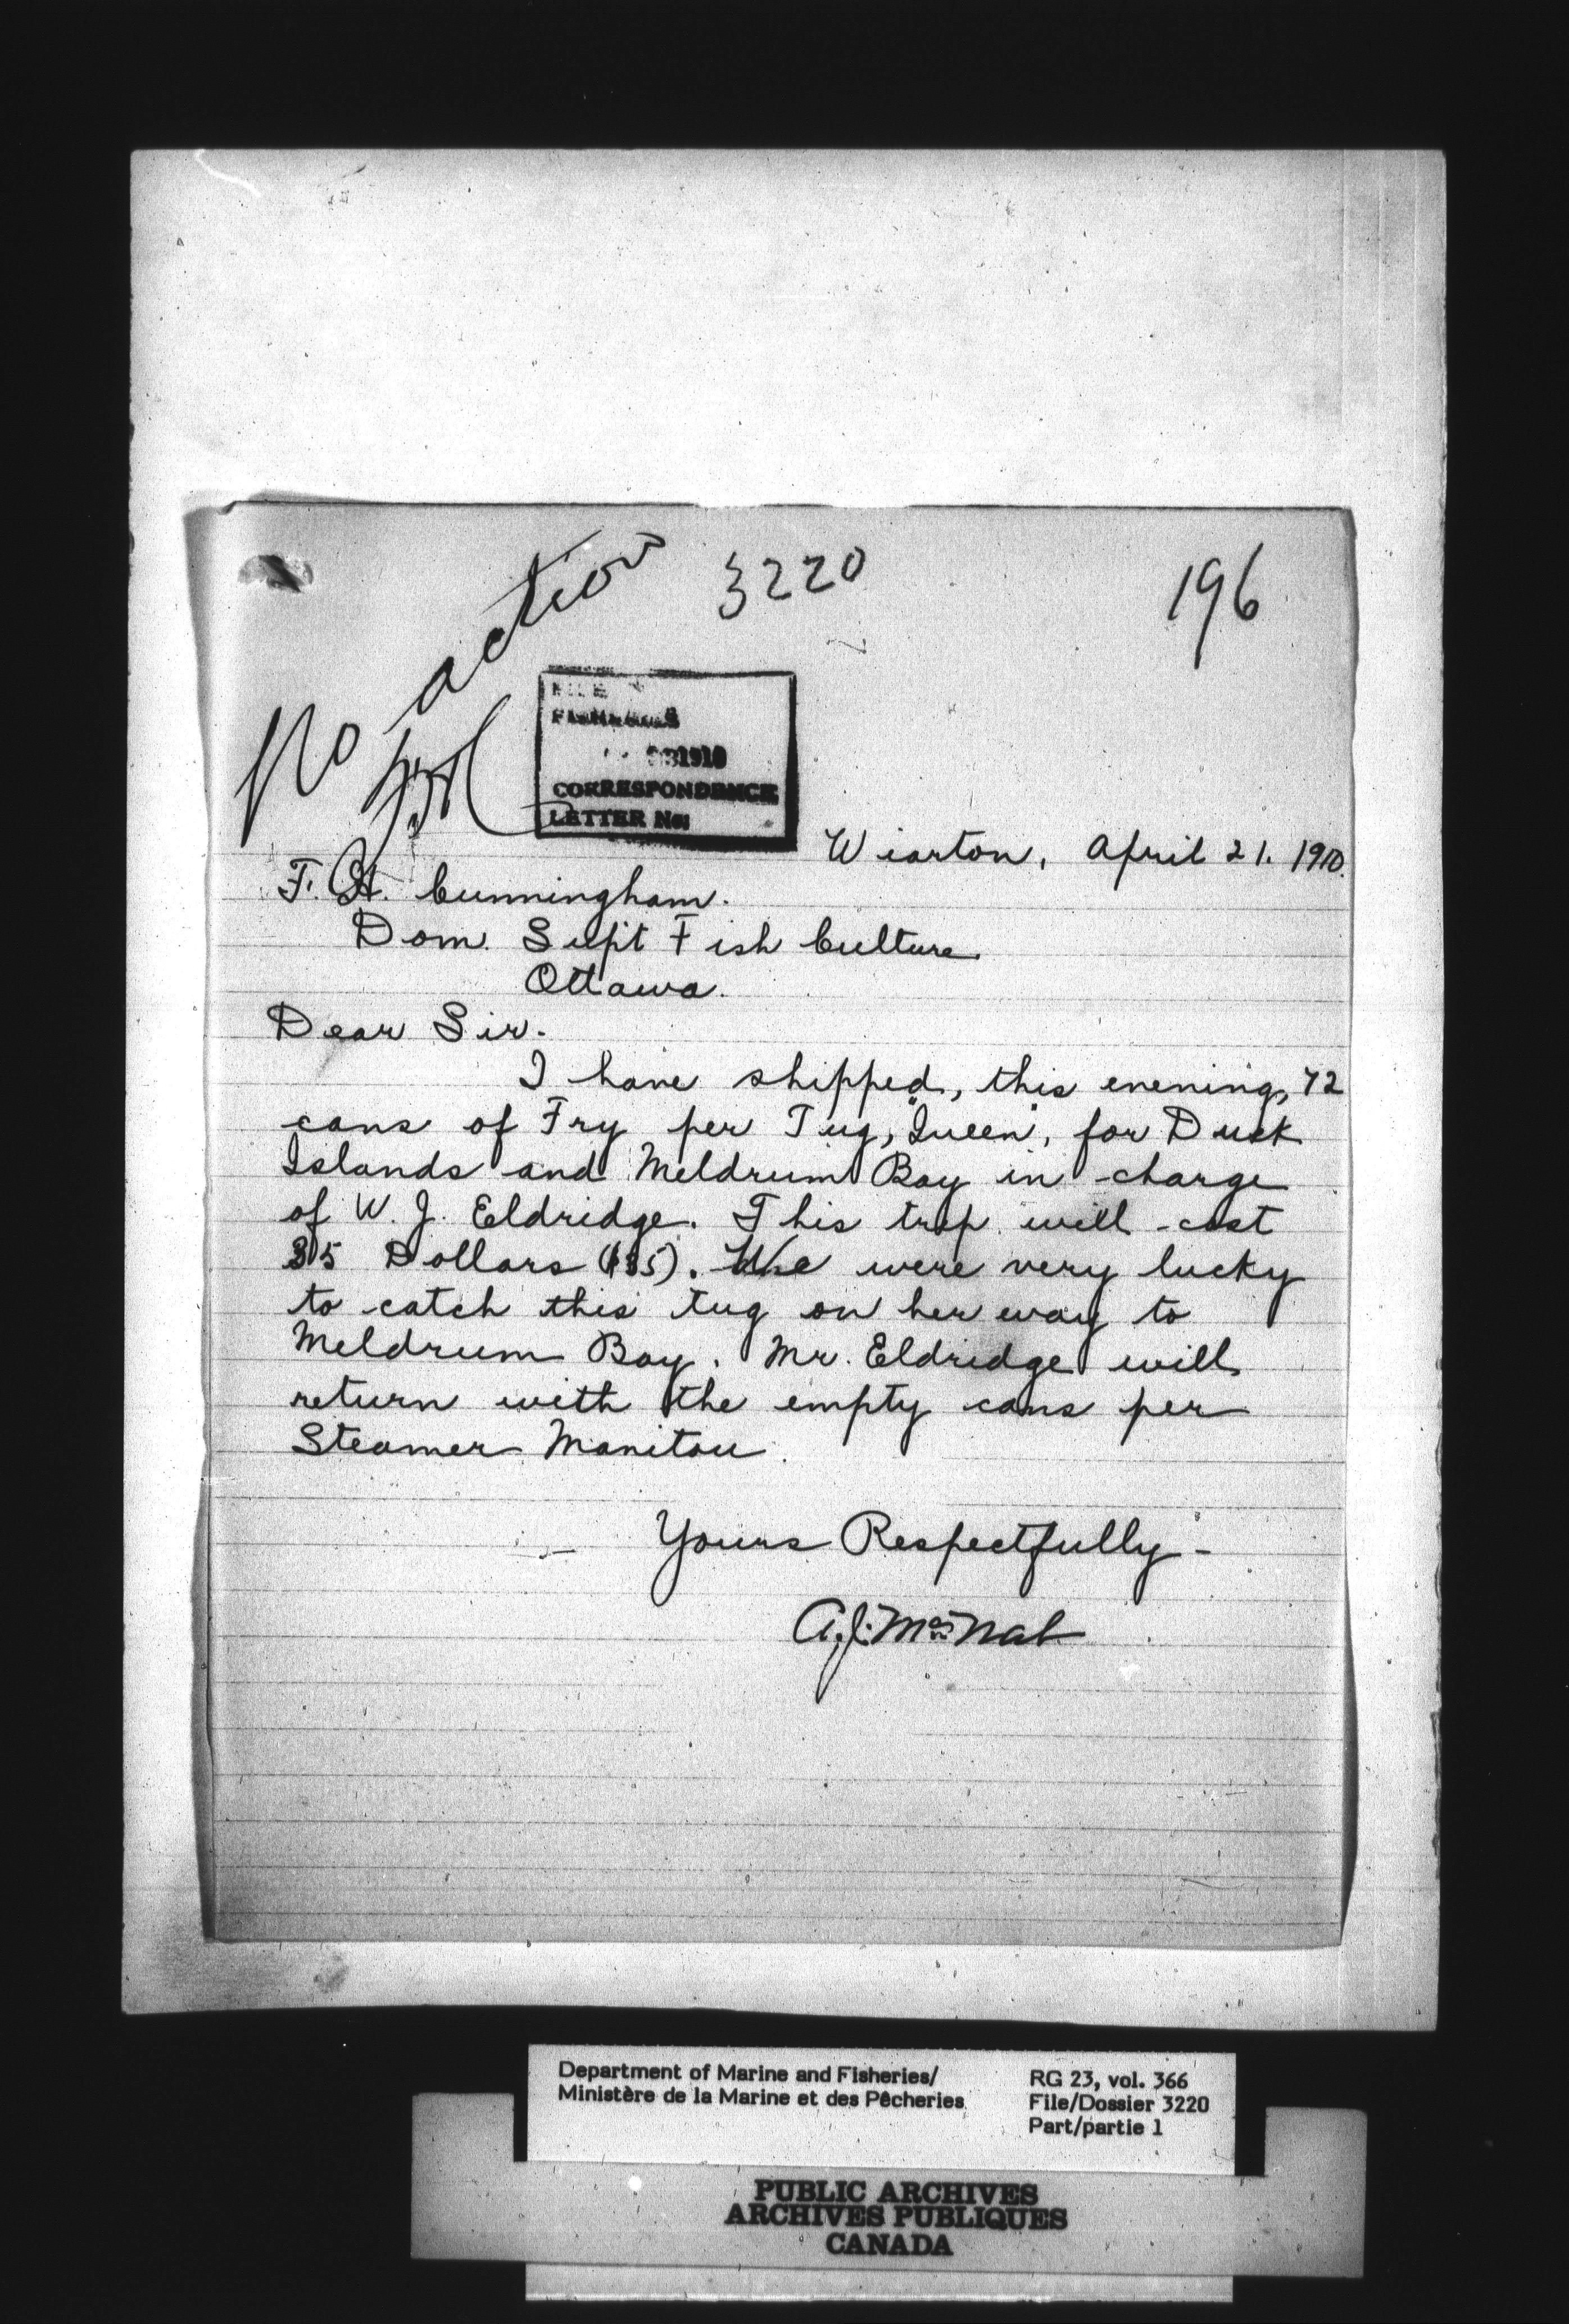 No action
3220
196
FILE
FISHERIES
1910
CORRESPONDENCE
LETTER No:
Wiarton, April 21. 1910.
F. H. Cunningham.
Dom. Supt Fish Culture.
Ottawa.
Dear Sir.
I have shipped, this evening, 72
cans of Fry per Tug, "Queen", for Duck
Islands and Meldrum Bay in charge
of W. J. Eldridge. This trip will cost
35 Dollars ($35). We were very lucky
to catch this tug on her way to
Meldrum Bay. Mr. Eldridge will
return with the empty cans per
Steamer Manitou.
Yours Respectfully -
A. J. McNab
Department of Marine and Fisheries/
Ministère de la Marine et des Pêcheries
RG 23, vol. 366
File/Dossier 3220
Part/partie 1
PUBLIC ARCHIVES
ARCHIVES PUBLIQUES
CANADA